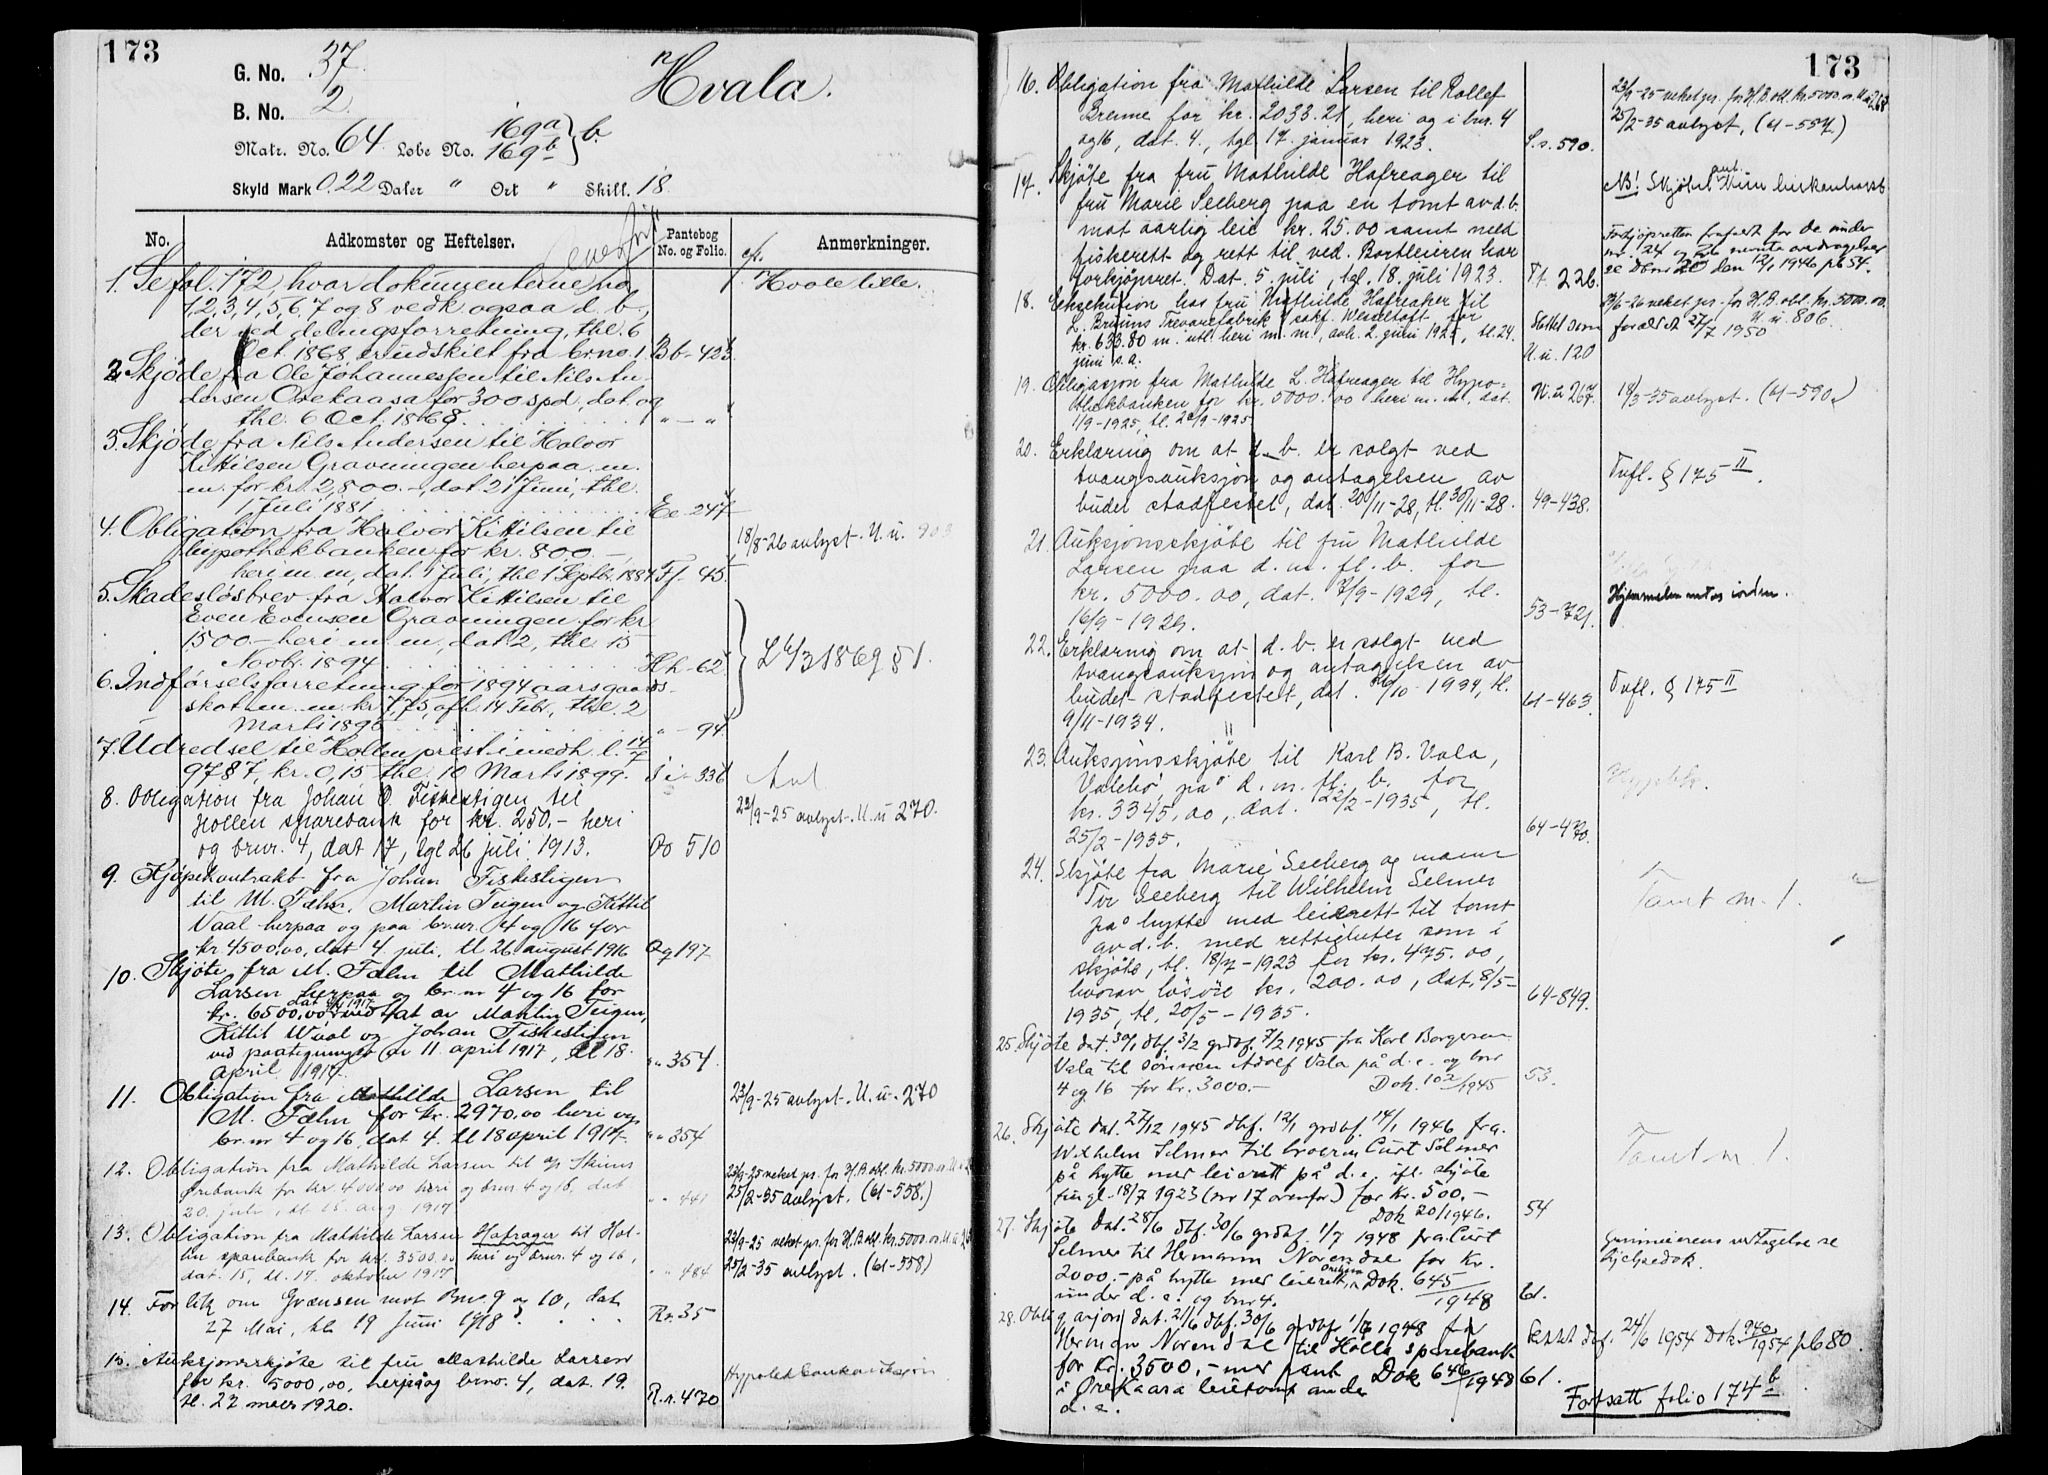 173
G. No. 37.
B. No. 2.
Hvala.
Matr. No. 64. Løbe No. 169a 169b } b.
Skyld Mark 0.22 Daler " Ort " Skill. 18.
No. Adkomster og Heftelser. Pantebog No. og Folio. Anmerkninger.
1. Se fol. 172, hvor dokumenterne no
1, 2, 3, 4, 5, 6, 7 og 8 vedk. ogsaa d. b.,
der ved delingsforretning, thl. 6
Oct. 1868, er udskilt fra br.no. 1. Bb-423
Hvale lille.
2. Skjøde fra Ole Johannessen til Nils An-
dersen Orekaasa for 300 spd., dat. og
thl. 6 Oct. 1868 " - "
3. Skjøde fra Nils Andersen til Halvor
Kittilsen Gravningen herpaa m.
m. for kr. 2,800.-, dat. 21 Juni, thl.
1 Juli 1881 Ee-247
4. Obligation fra Halvor Kittilsen til
hypothekbanken for kr. 800.-,
heri m. m., dat. 1 Juli, thl. 1 Septb. 1884 Ff. 45.
18/8-26 avlyst. U. u.
5. Skadesløsbrev fra Halvor Kittilsen til
Even Evensen Gravningen for kr
1500.- heri m. m., dat. 2, thl. 15
Novbr. 1894 Hh-62
L 4/3 1869 § 1.
6. Indførselsforretning for 1894 aars
skat m. m. kr. 7,75, afh. 14 Febr., thl. 2
Marts 1896 " - 94
7. Udredsel til Hollen prest i medh. l. 14/7
9787, kr. 0,15 thl. 10 Marts 1899. 336
8. Obligation fra Johan O. Fiskestigen til
Hollen sparebank for kr. 250.- heri
og brnr. 4, dat 17, tgl 26 juli 1913. Oo 510
22/9-25 avlyst. U. u 270.
9. Kjøpekontrakt fra Johan Fiskestigen
til M. Fæhn, Martin Teigen og Kittil
Vaal herpaa og paa br.nr. 4 og 16 for
kr 4500,00, dat 4 juli, tl 26 august 1916 Oq 197
10. Skjøte fra M. Fæhn til Mathilde
Larsen herpaa og br. nr 4 og 16 for
kr. 6500,00 vedtat av Martin Teigen,
Kittil Waal og Johan Fiskestigen
ved paategninger av 11. april 1917, tl 18.
april 1917. "" 354
11. Obligation fra Mathilde Larsen til
M. Fæhn for kr. 2970.00 heri og
br. nr 4 og 16, dat 4. tl 18 april 1917. "" 354
22/9-25 avlyst. U. u. 270
12. Obligation fra Mathilde Larsen til Skiens
Ørebank for kr. 4000.00 heri og brnr. 4 og 16, dat
20. juli, tl 15. aug. 1917 "" 441
23/9-25 veket pr. for H.B. obl. kr. 5000.00
25/2-35 avlyst. (61-558.)
13. Obligation fra Mathilde Larsen Hafrager til Hol-
len sparebank for kr. 3500.00 heri og brnr. 4 og 16,
dat. 15, tl. 17. oktober 1917 "" 484
23/9-25 veket pr. for H.B. obl. kr. 5000.00
25/2-35 avlyst. (61-558)
14. Forlik om Grænsen mot Bno. 9 og 10, dat
27 Mai, tl. 19 Juni 1918. Rr. 35
15. Auksjonsskjøte til fru Mathilde Larsen
for kr. 5000,00, herpå og brno. 4, dat. 19.
tl. 27. mars 1920. R.r. 470
Hypotekbankauksjon
173
16. Obligation fra Mathilde Larsen til Rollef
Brenne for kr. 2033.21, heri og i bnr. 4
og 16, dat. 4., tgl 17. januar 1923. S.s. 590.
23/9-25 veket pr. for H.B. obl. kr. 5000.00
25/2-35 avlyst. (61-557.)
17. Skjøte fra fru Mathilde Hafreager til
fru Marie Seeberg paa en tomt av d. b.
mot aarlig leie kr. 25.00 samt med
fiskerett og rett til ved. Bortleieren har
forkjøpsret. Dat. 5. juli, tgl. 18. juli 1923. Tt 226.
NB! Skjøtet
Forkjøpsretten frafalt for de under
nr. 24 og 26 nevnte overdragelser
se Dbnr 20 den 12/1 1946 pb 54.
18. Eksekution hos fru Mathilde Hafreager til
L. Bruuns Trevarefabrik v/ sakf. Wesseltoft for
kr. 633.80 m. utl. heri m. m., avh. 2. juni 1925, tl. 24.
juni s. a. U. u. 120
Slettet som foreldet 27/7 1950
19. Obligasjon fra Mathilde L. Hafreager til Hypo-
thekbanken for kr. 5000.00 heri m. m., dat.
1/9-1925, tl. 22/9-1925. U. u 267.
18/3-35 avlyst. (61-590.)
20. Erklæring om at d. b. er solgt ved
tvangsauksjon og antagelsen av
budet stadfestet, dat. 20/11-28, tl. 30/11-28. 49-438.
Tvfl. § 175 II.
21. Auksjonsskjøte til fru Mathilde
Larsen paa d. m. fl. b. for
kr. 5000.00, dat. 7/9-1929, tl.
16/9-1929. 53-721.
22. Erklæring om at d. b. er solgt ved
tvangsauksjon og antagelsen av
budet stadfestet, dat. 10/10-1934, tl.
9/11-1934. 61-463.
Tvfl. § 175 II
23. Auksjonsskjøte til Karl B. Vala,
Valebø, på d. m. fl. b. for
kr. 3345,00, dat. 22/2-1935, tl.
25/2-1935. 64-470.
24. Skjøte fra Marie Seeberg og mann
Tor Seeberg til Wilhelm Selmer
på hytte med leierett til tomt
av d. b. med rettigheter som i
skjøte, tl. 18/7-1923 for kr. 475.00,
hvorav løsøre kr. 200.00, dat. 8/5-
1935, tl. 20/5-1935. 64-849.
Tomt nr. 1.
25. Skjøte dat. 30/1 dbf. 3/2 grdbf. 7/2 1945 fra Karl Borgersen
Vala til sønnen Adolf Vala på d. e. og bnr
4 og 16 for kr. 3000.- Dok. 102/1945 53.
26. Skjøte dat. 27/12 1945 dbf. 12/1 grdbf. 14/1 1946 fra
Wilhelm Selmer til broren Curt Selmer
på hytte med leierett på d. e. ifl. skjøte
tingl. 18/7 1923 (nr 17 ovenfor) for kr. 500.-
Dok 20/1946. 54
Tomt nr 1.
27. Skjøte dat. 28/6 dbf. 30/6 grdbf. 1/7 1948 fra Curt
Selmer til Hermann Norendal for kr.
2000.- på hytte med leierett Dok. 645/1948
under d. e. og bnr 4. 61.
28. Obligasjon dat. 21/6 dbf. 30/6 grdbf. 1/7 1948 fra
Herman Norendal til Holla sparebank
for kr. 3500.- med pant Dok 646/1948 61.
i Orekaasa leietomt under
d. e.
Slettet dbf. 24/6 1954 Dok 940/1954 pb 80.
Fortsatt folio 174 b